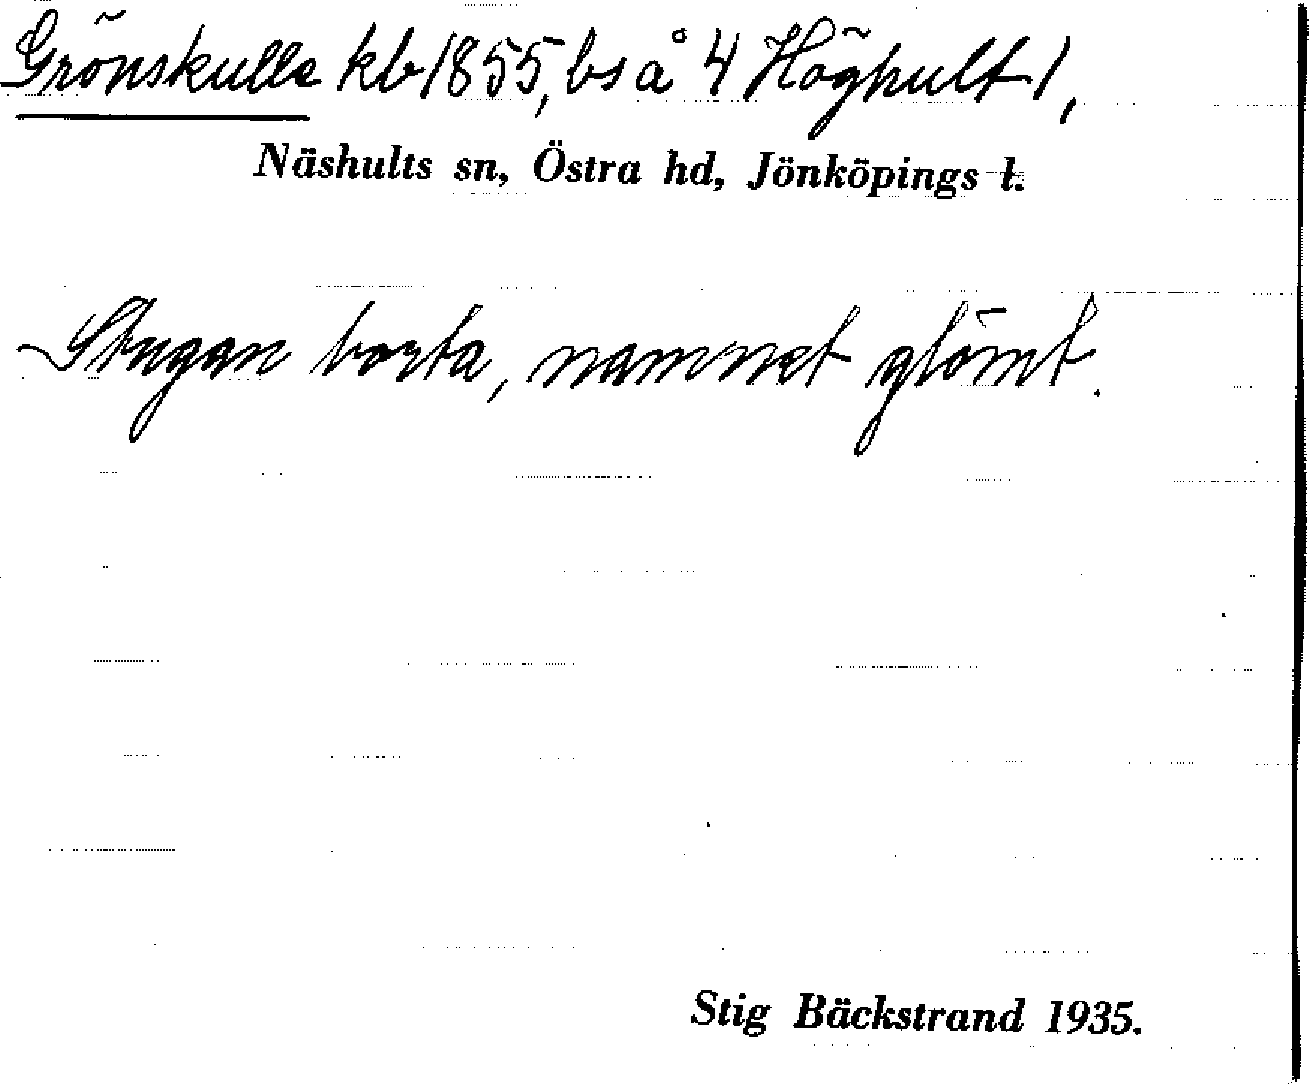 Grönskulle kb 1855, bs å 4 Höghult 1,
Näshults sn, Östra hd, Jönköpings l.
Stugan borta, namnet glömt.
Stig Bäckstrand 1935.